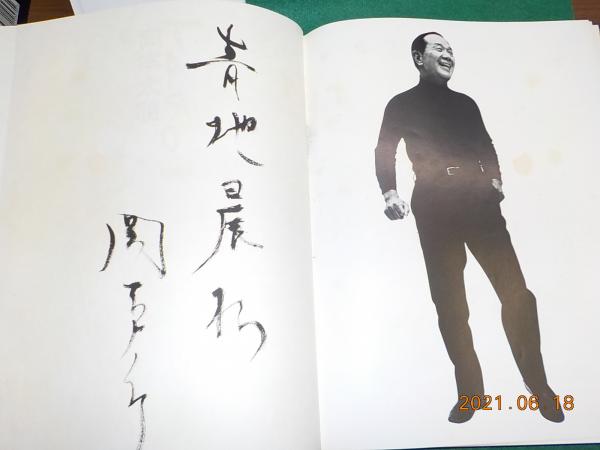 青地晨様
関
2021.06.18